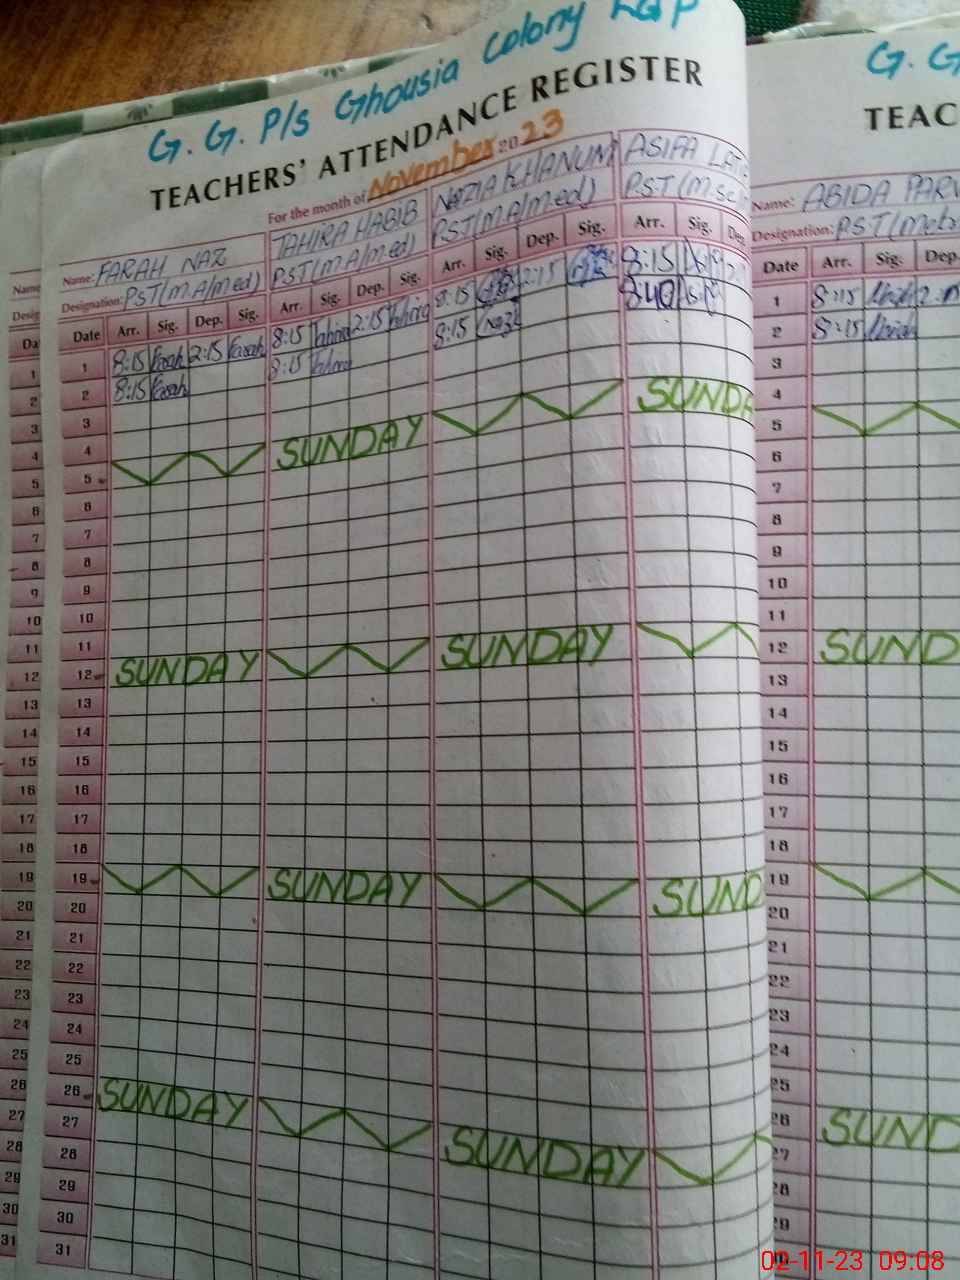 G. G. P/s Ghousia Colony
TEACHERS' ATTENDANCE REGISTER
For the month of November 2023
Name: FARAH NAZ TAHIRA HABIB NAZIA KHANUM ASIFA
Designation: P.S.T (M.A/M.ed) P.S.T (M.A/M.ed) P.S.T (M.A/M.ed) P.S.T (M.Sc
Date Arr. Sig. Dep. Sig. Arr. Sig. Dep. Sig. Arr. Sig. Dep. Sig. Arr. Sig. Dep.
1 8:15 Farah 2:15 Farah 8:15 Tahira 2:15 Tahira 8:15 2:15 8:15
2 8:15 Farah 8:15 Tahira 8:15 8:40
3
4
5 SUNDAY SUNDA
6
7
8
9
10
11
12 SUNDAY SUNDAY
13
14
15
16
17
18
19 SUNDAY SUND
20
21
22
23
24
25
26 SUNDAY SUNDAY
27
28
29
30
31
G. G
TEAC
Name: ABIDA PARV
Designation: P.S.T (
Date Arr. Sig. Dep.
1 8:15
2 8:15
3
4
5
6
7
8
9
10
11
12 SUND
13
14
15
16
17
18
19
20
21
22
23
24
25
26 SUND
27
28
29
Name
Desig
Da
1
2
3
4
5
6
7
8
9
10
11
12
13
14
15
16
17
18
19
20
21
22
23
24
25
26
27
28
29
30
31
02-11-23 09:08